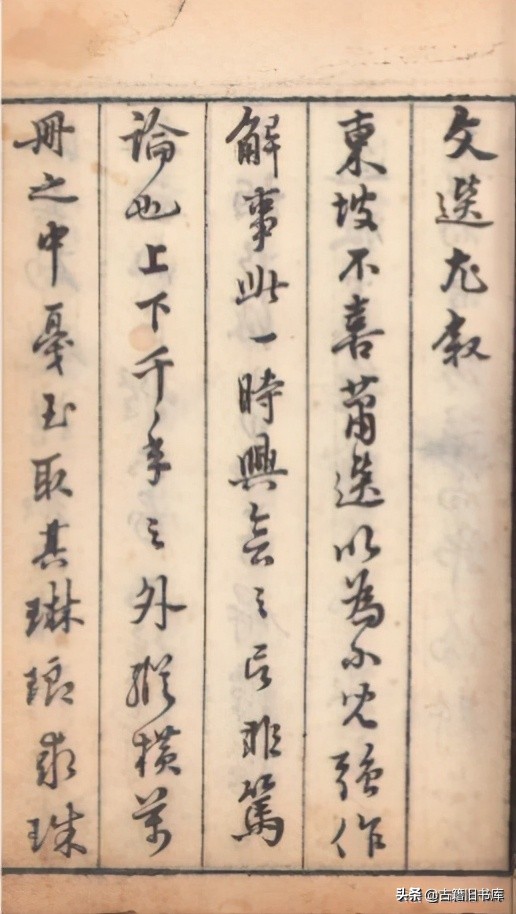 文選尤敘
東坡不喜蕭選以為小兒強作
解事此一時興會之言非篤
論也上下千年之外縱橫萬
冊之中戛玉取其琳瑯求珠
头条 @古籍旧书库